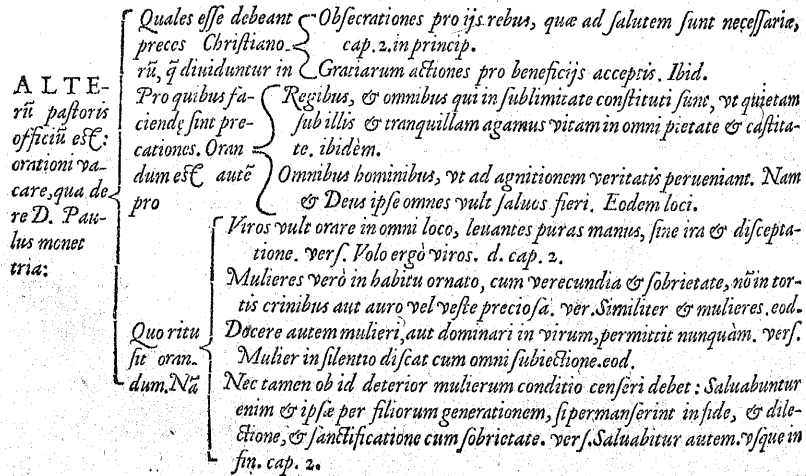 ALTE-
rũ paſtoris
officiũ eſt:
orationi va-
care, qua de
re D. Pau-
lus monet
tria:
Quales eſſe debeant
preces Chriſtiano-
rũ, q̃ diuiduntur in
Obſecrationes pro ijs rebus, quæ ad ſalutem ſunt neceſſariæ,
cap. 2. in princip.
Gratiarum actiones pro beneficijs acceptis. Ibid.
Pro quibus fa-
ciendę ſint pre-
cationes. Oran
dum eſt autẽ
pro
Regibus, & omnibus qui in ſublimitate conſtituti ſunt, vt quietam
ſub illis & tranquillam agamus vitam in omni pietate & caſtita-
te. ibidèm.
Omnibus hominibus, vt ad agnitionem veritatis perueniant. Nam
& Deus ipſe omnes vult ſaluos fieri. Eodem loci.
Quo ritu
ſit oran-
dum. Nã
Viros vult orare in omni loco, leuantes puras manus, ſine ira & diſcepta-
tione. verſ. Volo ergò viros. d. cap. 2.
Mulieres verò in habitu ornato, cum verecundia & ſobrietate, nõ in tor-
tis crinibus aut auro vel veſte precioſa. ver. Similiter & mulieres. eod.
Docere autem mulieri, aut dominari in virum, permittit nunquàm. verſ.
Mulier in ſilentio diſcat cum omni ſubiectione. eod.
Nec tamen ob id deterior mulierum conditio cenſeri debet: Saluabuntur
enim & ipſæ per filiorum generationem, ſi permanſerint in fide, & dile-
ctione, & ſanctificatione cum ſobrietate. verſ. Saluabitur autem. vſque in
fin. cap. 2.